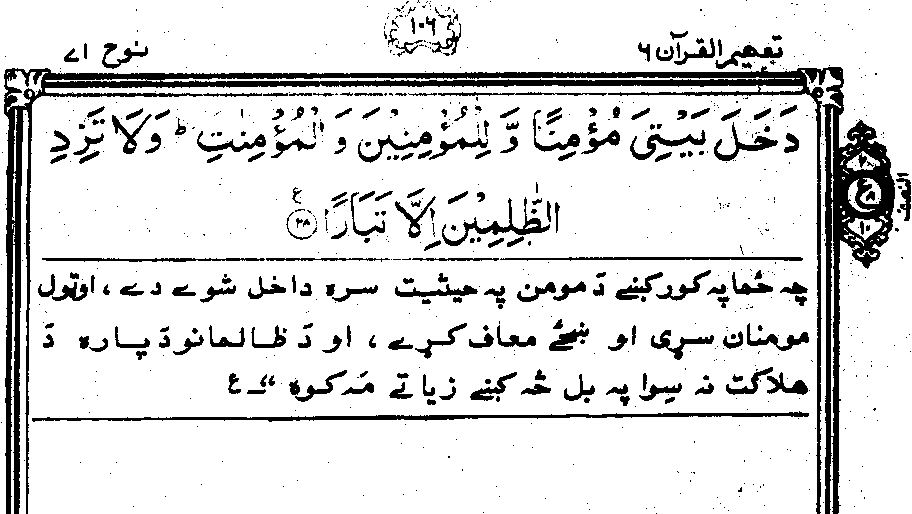 تفهيم القرآن ۶
۱۰۶
نوح ۷۱
دَخَلَ بَيْتِيَ مُؤْمِنًا وَّ لِلْمُؤْمِنِيْنَ وَ الْمُؤْمِنٰتِ ؕ وَلَا تَزِدِ
الظّٰلِمِيْنَ اِلَّا تَبَارًا ۲۸ ع
چه ځما په کور کښے دَ مومن په حيثيت سره داخل شوے دے ، او ټول
مومنان سړی او ښځے معاف کړے ، او دَ ظالمانو دَ پاره دَ
هلاکت نه سوا په بل څه کښے زياتے مَه کوه “ـ ع
النصف
۲
ع ۸
۱۰